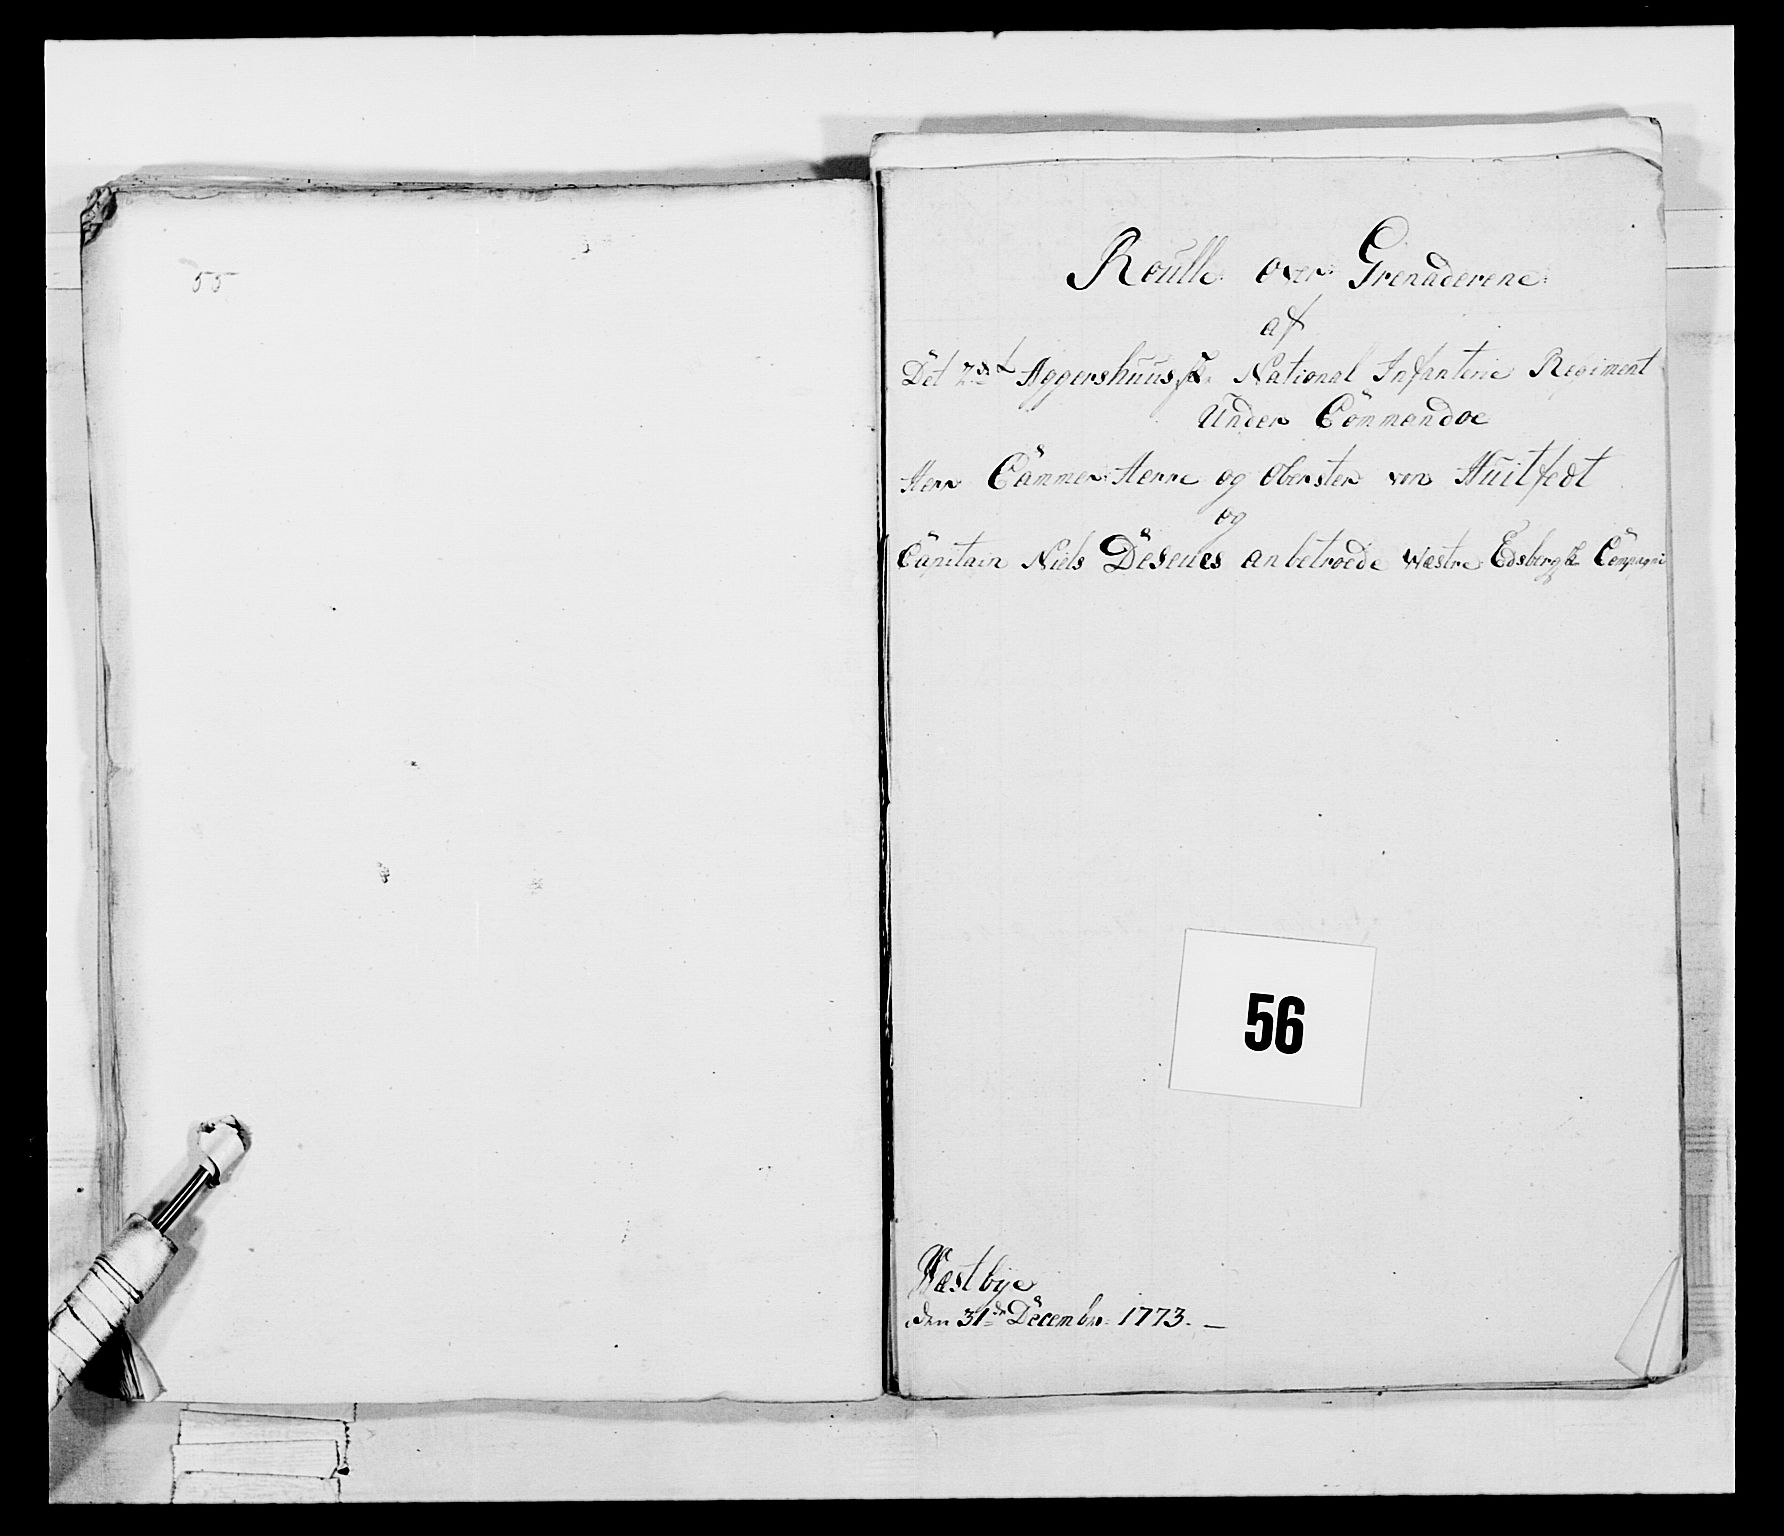 55
Roulle over Grenaderene
af
Det 2det Aggershuusske National Infanterie Regiment
Under Commandoe
Herr Cammer Herre og Obersten von Huitfedt
og
Capitain Niels Deseues anbetroede Wæstre Edsbergske Compagni
56
Wæstbye
den 31de Decembr: 1773. —